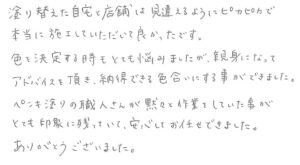 塗り替えた自宅と店舗は見違えるようにピカピカで
本当に施工していただいて良かったです。
色を決定する時もとても悩みましたが、親身になって
アドバイスを頂き、納得できる色合いにする事ができました。
ペンキ塗りの職人さんが黙々と作業をしていた事が
とても印象に残っていて、安心してお任せできました。
ありがとうございました。